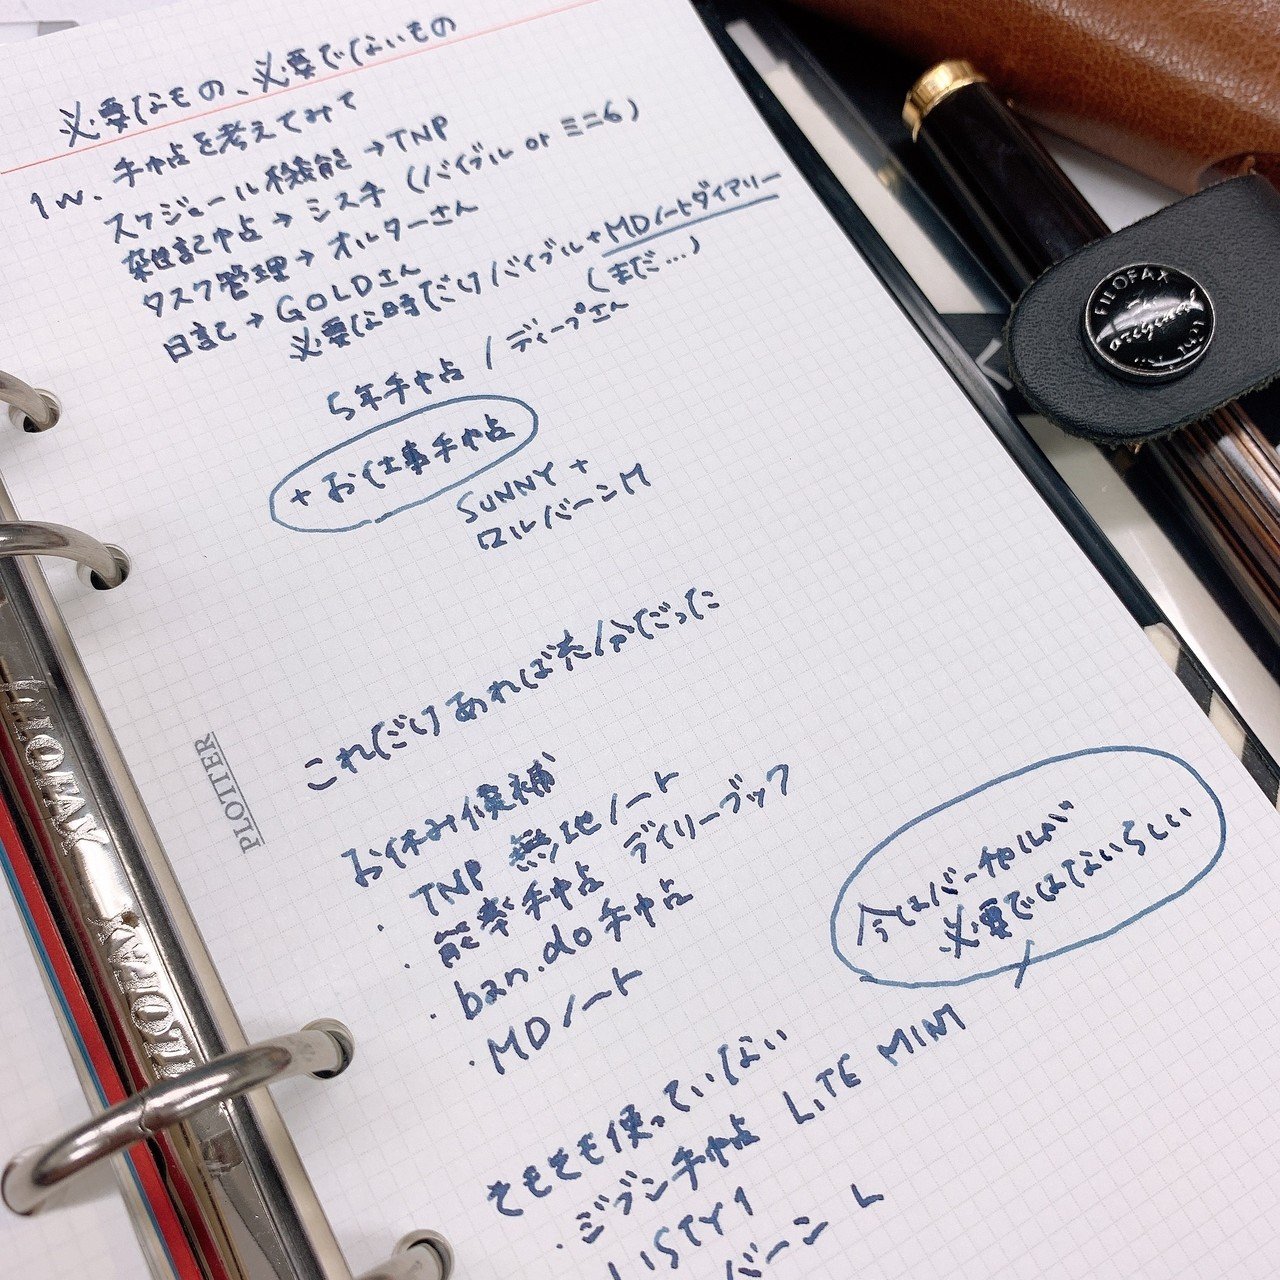 必要なもの、必要でないもの
1w. 手帖を考えてみて
スケジュール機能→TNP
雑記帖→シス手(バイブル or ミニ6)
タスク管理→オルターさん
日記→GOLDさん
必要な時だけバイブル+MDノートダイアリー
(まだ...)
5年手帖/ディープさん
+お仕事手帖
SUNNY+
ロルバーンM
これだけあれば充分だった
お休み候補
・TNP 無地ノート
・能率手帖 デイリーブック
・ban.do手帖
・MDノート
今はバーチカルが
必要ではないらしい
そもそも使っていない
・ジブン手帖 LiTE MINI
LISTY1
バーン L
PLOTTER
FILOFAX
FILOFAX
FILOFAX